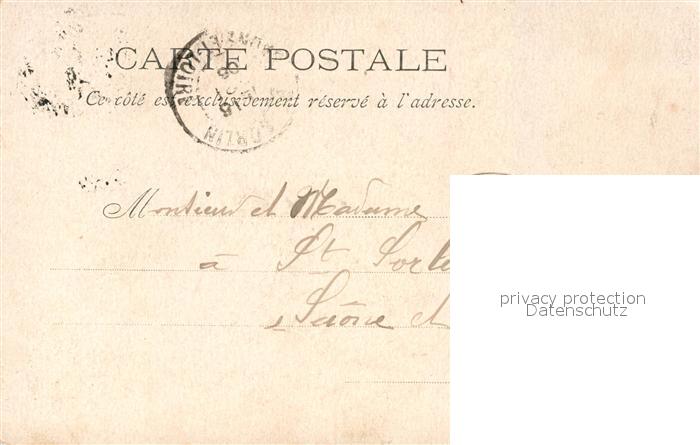 CARTE POSTALE
Ce côté est exclusivement réservé à l'adresse.
Monsieur et Madame
à St Sorl
Saône et
privacy protection
Datenschutz